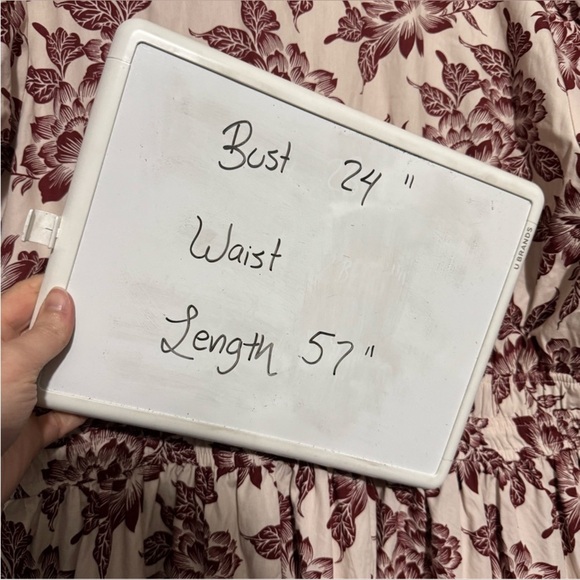 Bust 24 "
Waist
Length 57 "
U BRANDS